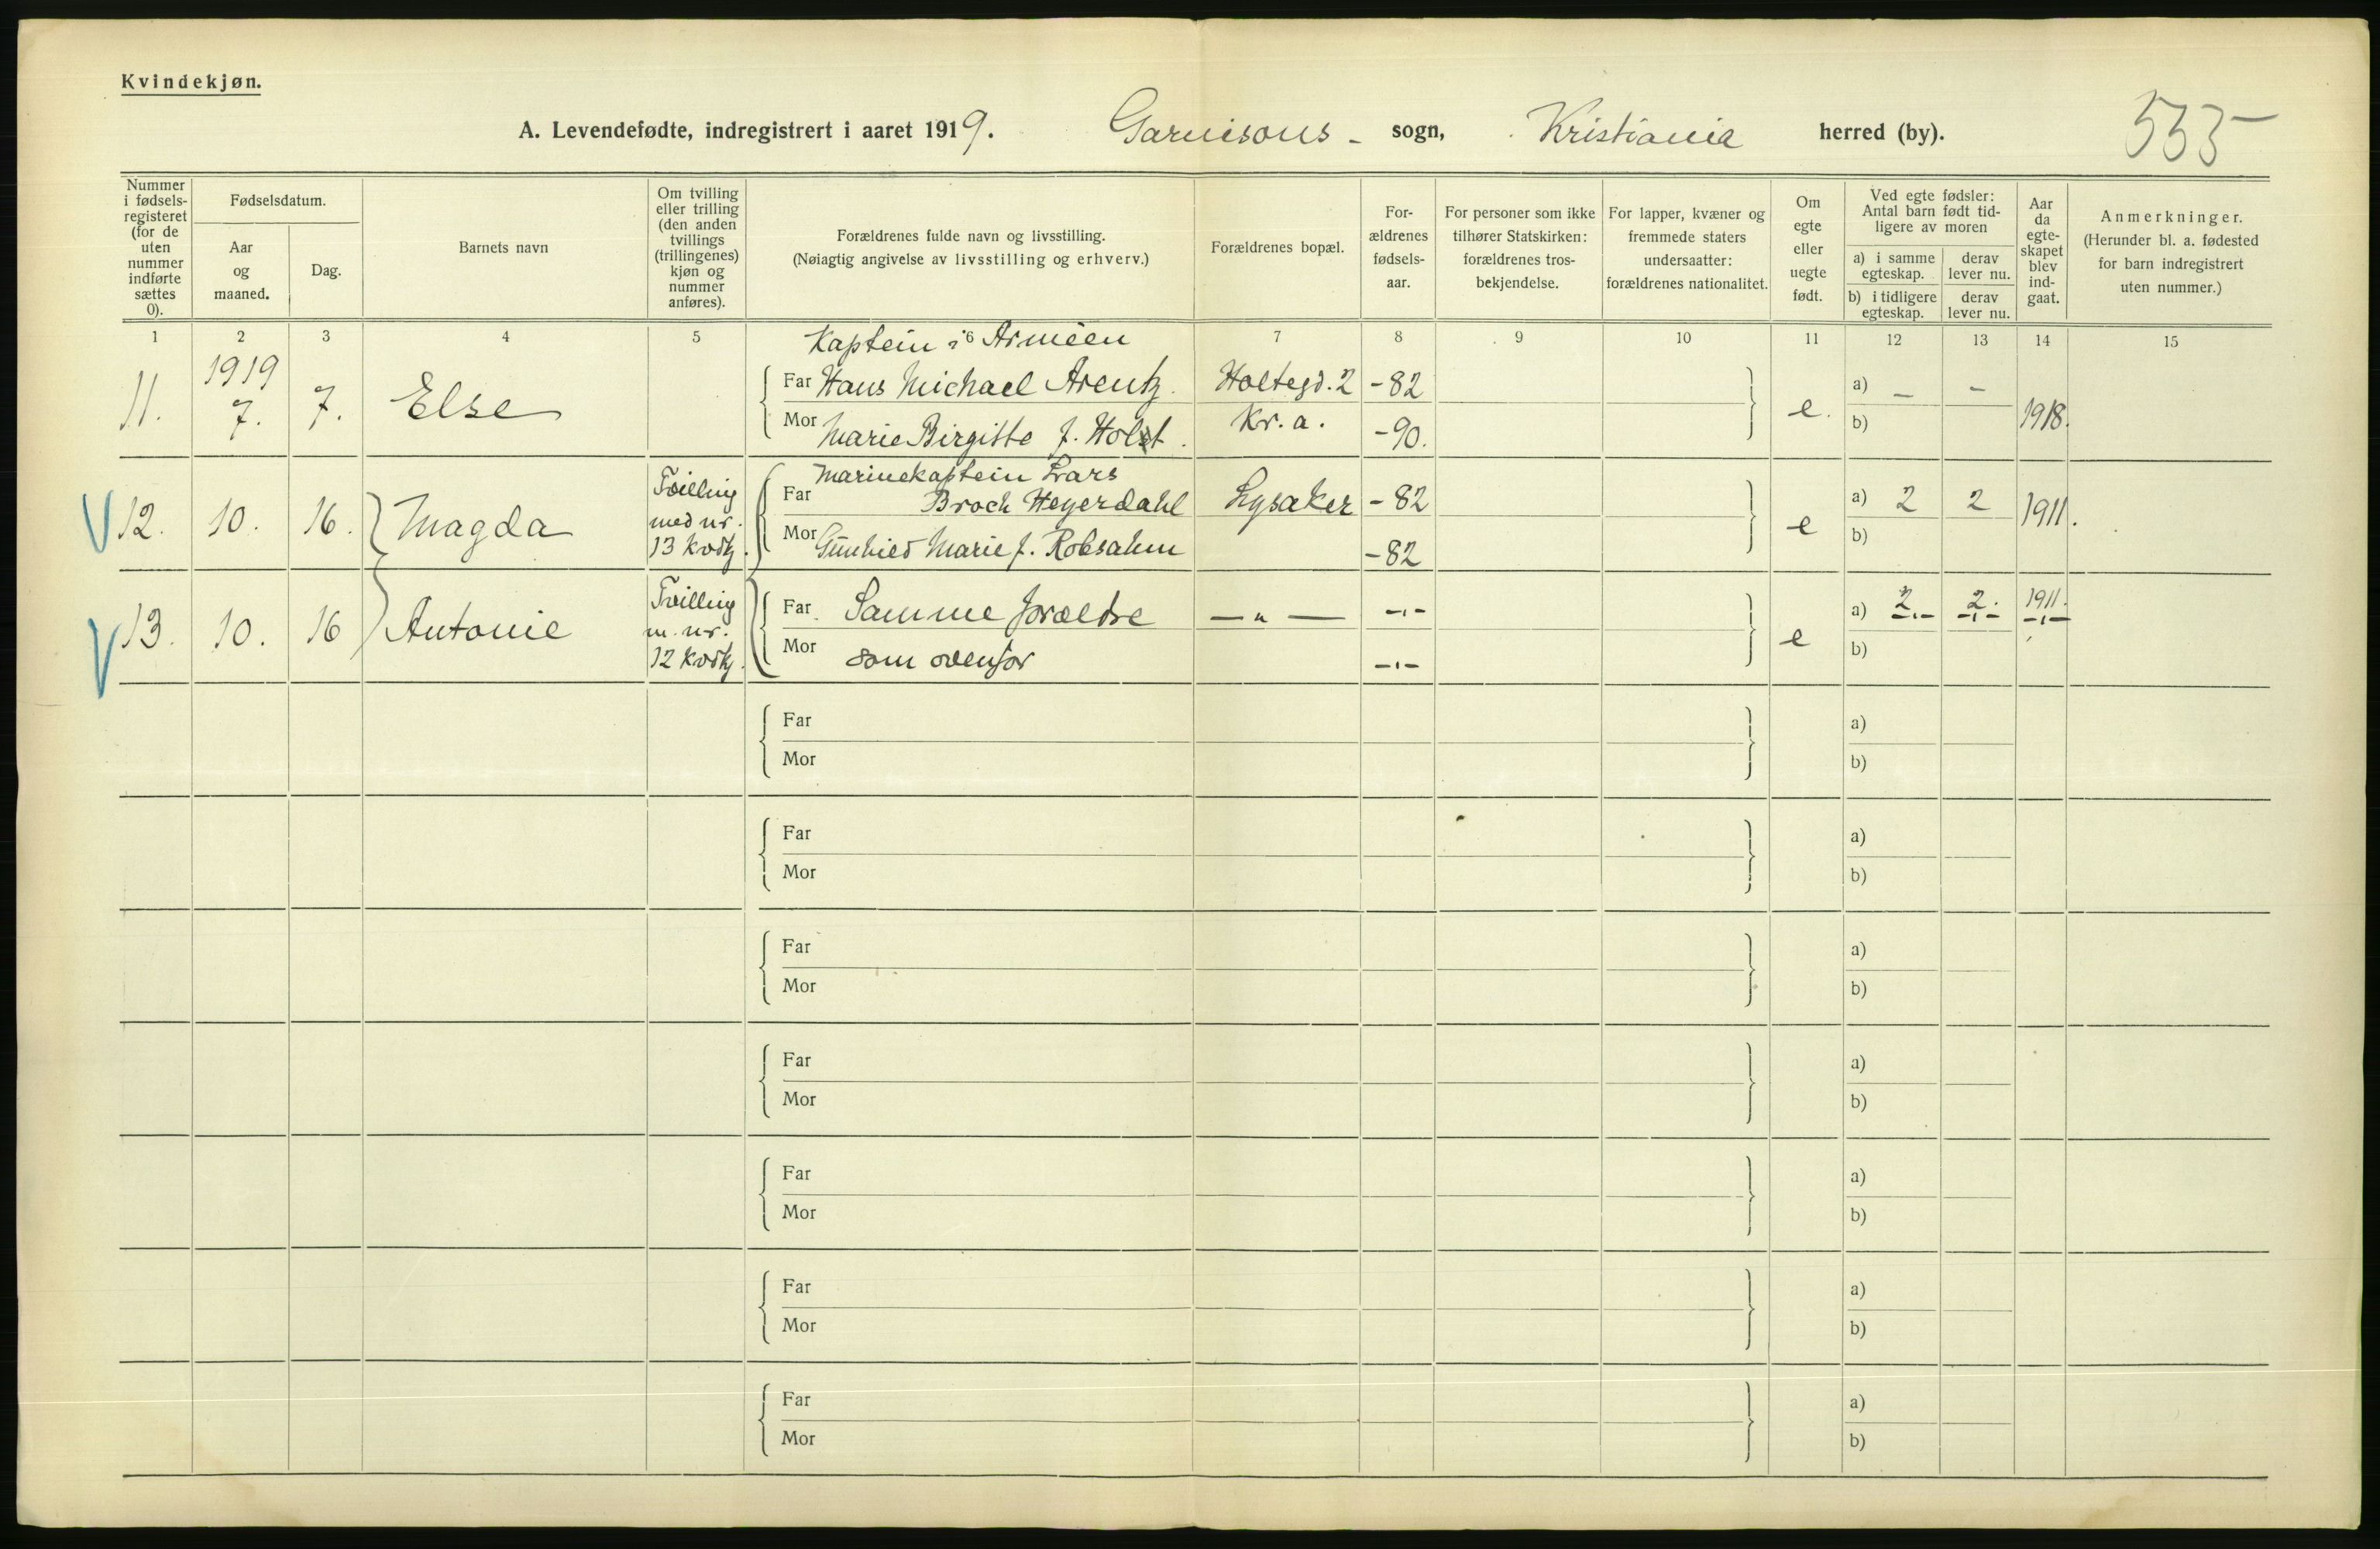 Kvindekjøn.
A. Levendefødte, indregistrert i aaret 1919. Garnisons - sogn, Kristiania herred (by). 535
Nummer i fødselsregisteret (for de uten nummer indførte sættes 0).
Fødselsdatum.
Aar og maaned.
Dag.
Barnets navn
Om tvilling eller trilling (den anden tvillings (trillingenes) kjøn og nummer anføres).
Forældrenes fulde navn og livsstilling.
(Nøiagtig angivelse av livsstilling og erhverv.)
Forældrenes bopæl.
For-ældrenes fødsels-aar.
For personer som ikke tilhører Statskirken: forældrenes tros-bekjendelse.
For lapper, kvæner og fremmede staters undersaatter: forældrenes nationalitet.
Om egte eller uegte født.
Ved egte fødsler: Antal barn født tid-ligere av moren
a) i samme egteskap. derav lever nu.
b) i tidligere egteskap. derav lever nu.
Aar da egte-skapet blev ind-gaat.
Anmerkninger.
(Herunder bl. a. fødested for barn indregistrert uten nummer.)
1 2 3 4 5 6 7 8 9 10 11 12 13 14 15
Kaptein i Armeen
11. 1919 7. 7. Else Far Hans Michael Arentz. Holtegd. 2 -82 e. a) – – 1918.
Mor Marie Birgitte f. Holst. Kr.a. -90. b)
Marinekaptein Lars
12. 10. 16. Magda Tvilling med nr. 13 kvdkj. Far Broch Heyerdahl Lysaker -82 e a) 2 2 1911.
Mor Gunhild Marie f. Robsahm -82 b)
13. 10. 16 Antonie Tvilling m. nr. 12 kvdkj. Far Samme forældre — „ — -„- e a) 2 -„- 2. -„- 1911. -„-
Mor som ovenfor -„- b)
Far a)
Mor b)
Far a)
Mor b)
Far a)
Mor b)
Far a)
Mor b)
Far a)
Mor b)
Far a)
Mor b)
Far a)
Mor b)